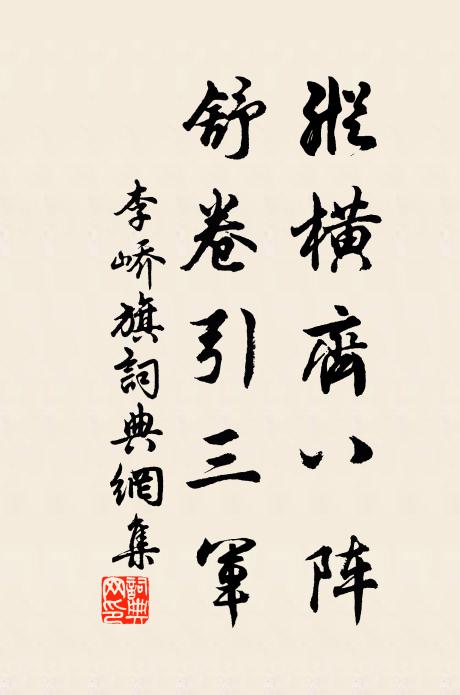 縱橫齊八阵
舒卷引三軍
李嶠旗詞典網集
詞典網印